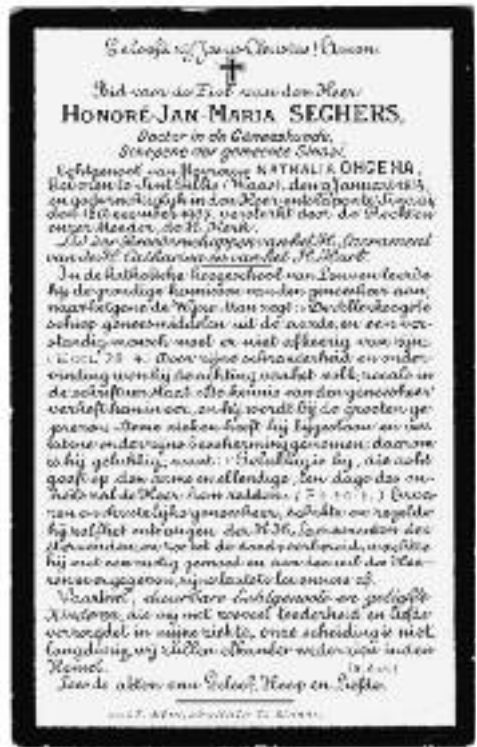 Geloofd zij Jesus Christus! Amen.
Bid voor de Ziel van den Heer
HONORÉ-JAN-MARIA SEGHERS,
Doctor in de Geneeskunde,
Schepene der gemeente Sinaai,
Echtgenoot van Mevrouw NATHALIA ONGENA,
Geboren te Sint Gillis (Waas), den Januari
en godvruchtiglijk in den Heer ontslapen te Sinaai
den December versterkt door de Rechten
onzer Moeder de H. Kerk.
Lid der Genootschappen van het H. Sacrament
van de H. Catharina en van het H. Hart.
In de katholieke hoogeschool van Leuven leerde
hij de grondige kennissen van den geneesheer aan,
naar hetgene de Wijze Man zegt: De Allerhoogste
schiep geneesmiddelen uit de aarde, en een ver-
standig mensch moet er niet afkeerig van zijn.
Door zijne schranderheid en onder-
vinding won hij de achting van het volk, zooals in
de schriftuur staat: De kennis van den geneesheer
verheft hem in eer, en hij wordt bij de grooten ge-
prezen. Arme zieken heeft hij bijgestaan en
onder zijne bescherming genomen; daarom
is hij gelukkig, want: Gelukkig is hij, die acht
geeft op den arme en ellendige, ten dage des on-
heils zal de Heer hem redden.
en christelijke geneesheer, schikte en regelde
hij zelf het ontvangen der H.H. Sacramenten der
stervenden, en tot de dood voorbereid, wachtte
hij met moedig gemoed en aan den wil des Hee-
ren overgegeven, zijne laatste levensure af.
Vaarwel, dierbare Echtgenoote en geliefde
Kinderen, die mij met zooveel teederheid en liefde
verzorgdet in mijne ziekte, onze scheiding is niet
langdurig, wij zullen elkander wederzien in den
Hemel.
Lees de akten van Geloof, Hoop en Liefde.